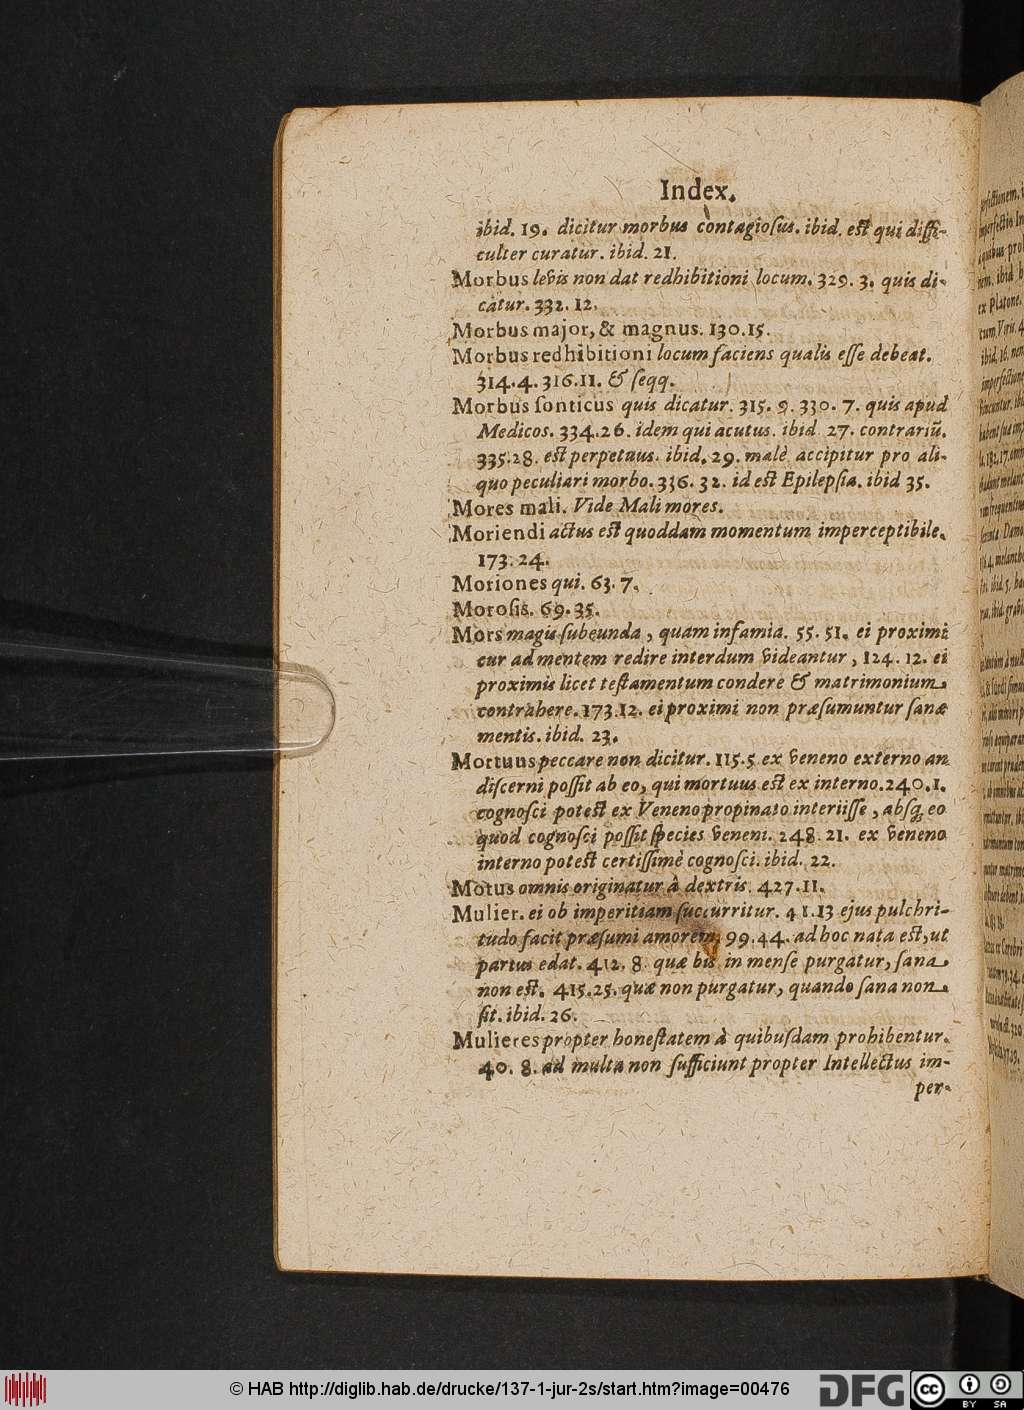 Index.
ibid. 19. dicitur morbus contagiosus. ibid. est qui diffi-
culter curatur. ibid. 21.
Morbus levis non dat redhibitioni locum. 329. 3. quis di-
catur. 332. 12.
Morbus major, & magnus. 130. 15.
Morbus redhibitioni locum faciens qualis esse debeat.
314. 4. 316. 11. & seqq.
Morbus sonticus quis dicatur. 315. 9. 330. 7. quis apud
Medicos. 334. 26. idem qui acutus. ibid 27. contrariũ.
335. 28. est perpetuus. ibid. 29. malè accipitur pro ali-
quo peculiari morbo. 336. 32. id est Epilepsia. ibid 35.
Mores mali. Vide Mali mores.
Moriendi actus est quoddam momentum imperceptibile.
173. 24.
Moriones qui. 63. 7.
Morosis. 69. 35.
Mors magis subeunda, quam infamia. 55. 51. ei proximi
cur ad mentem redire interdum videantur, 124. 12. ei
proximis licet testamentum condere & matrimonium
contrahere. 173. 12. ei proximi non præsumuntur sanæ
mentis. ibid. 23.
Mortuus peccare non dicitur. 115. 5 ex veneno externo an
discerni possit ab eo, qui mortuus est ex interno. 240. 1.
cognosci potest ex Veneno propinato interiisse, absq; eo
quod cognosci possit species veneni. 248. 21. ex veneno
interno potest certissimè cognosci. ibid. 22.
Motus omnis originatur à dextris. 427. 11.
Mulier. ei ob imperitiam succurritur. 41. 13 ejus pulchri-
tudo facit præsumi amorem. 99. 44. ad hoc nata est, ut
partus edat. 412. 8. quæ bis in mense purgatur, sana
non est. 415. 25. quæ non purgatur, quando sana non
sit. ibid. 26.
Mulieres propter honestatem à quibusdam prohibentur.
40. 8. ad multa non sufficiunt propter Intellectus im-
per-
© HAB http://diglib.hab.de/drucke/137-1-jur-2s/start.htm?image=00476
DFG
cc
BY SA